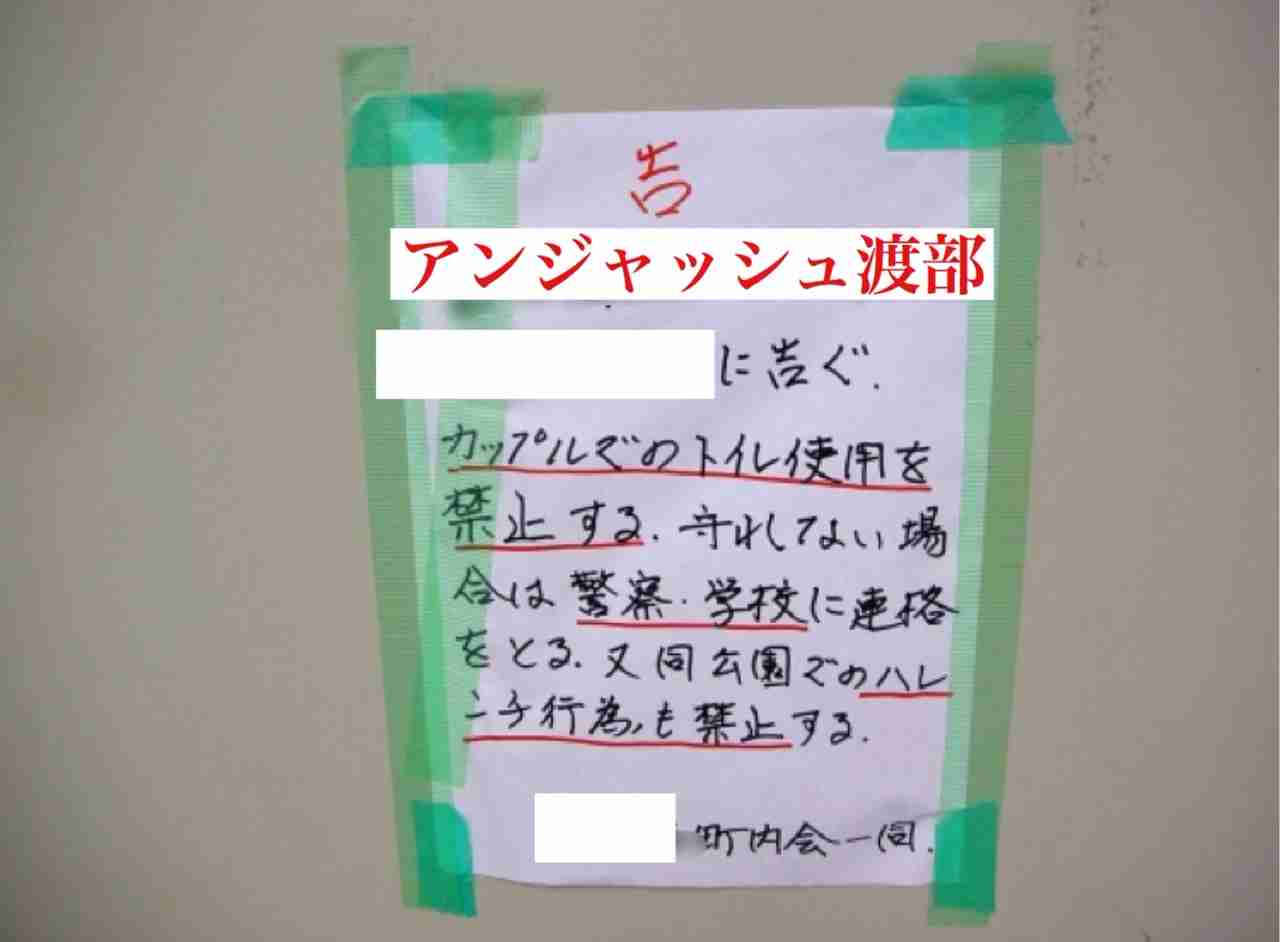 告
アンジャッシュ渡部
に告ぐ.
カップルでのトイレ使用を
禁止する. 守れしてない場
合は警察・学校に連絡
をとる. 又同公園でのハレ
ンチ行為も禁止する.
町内会一同.